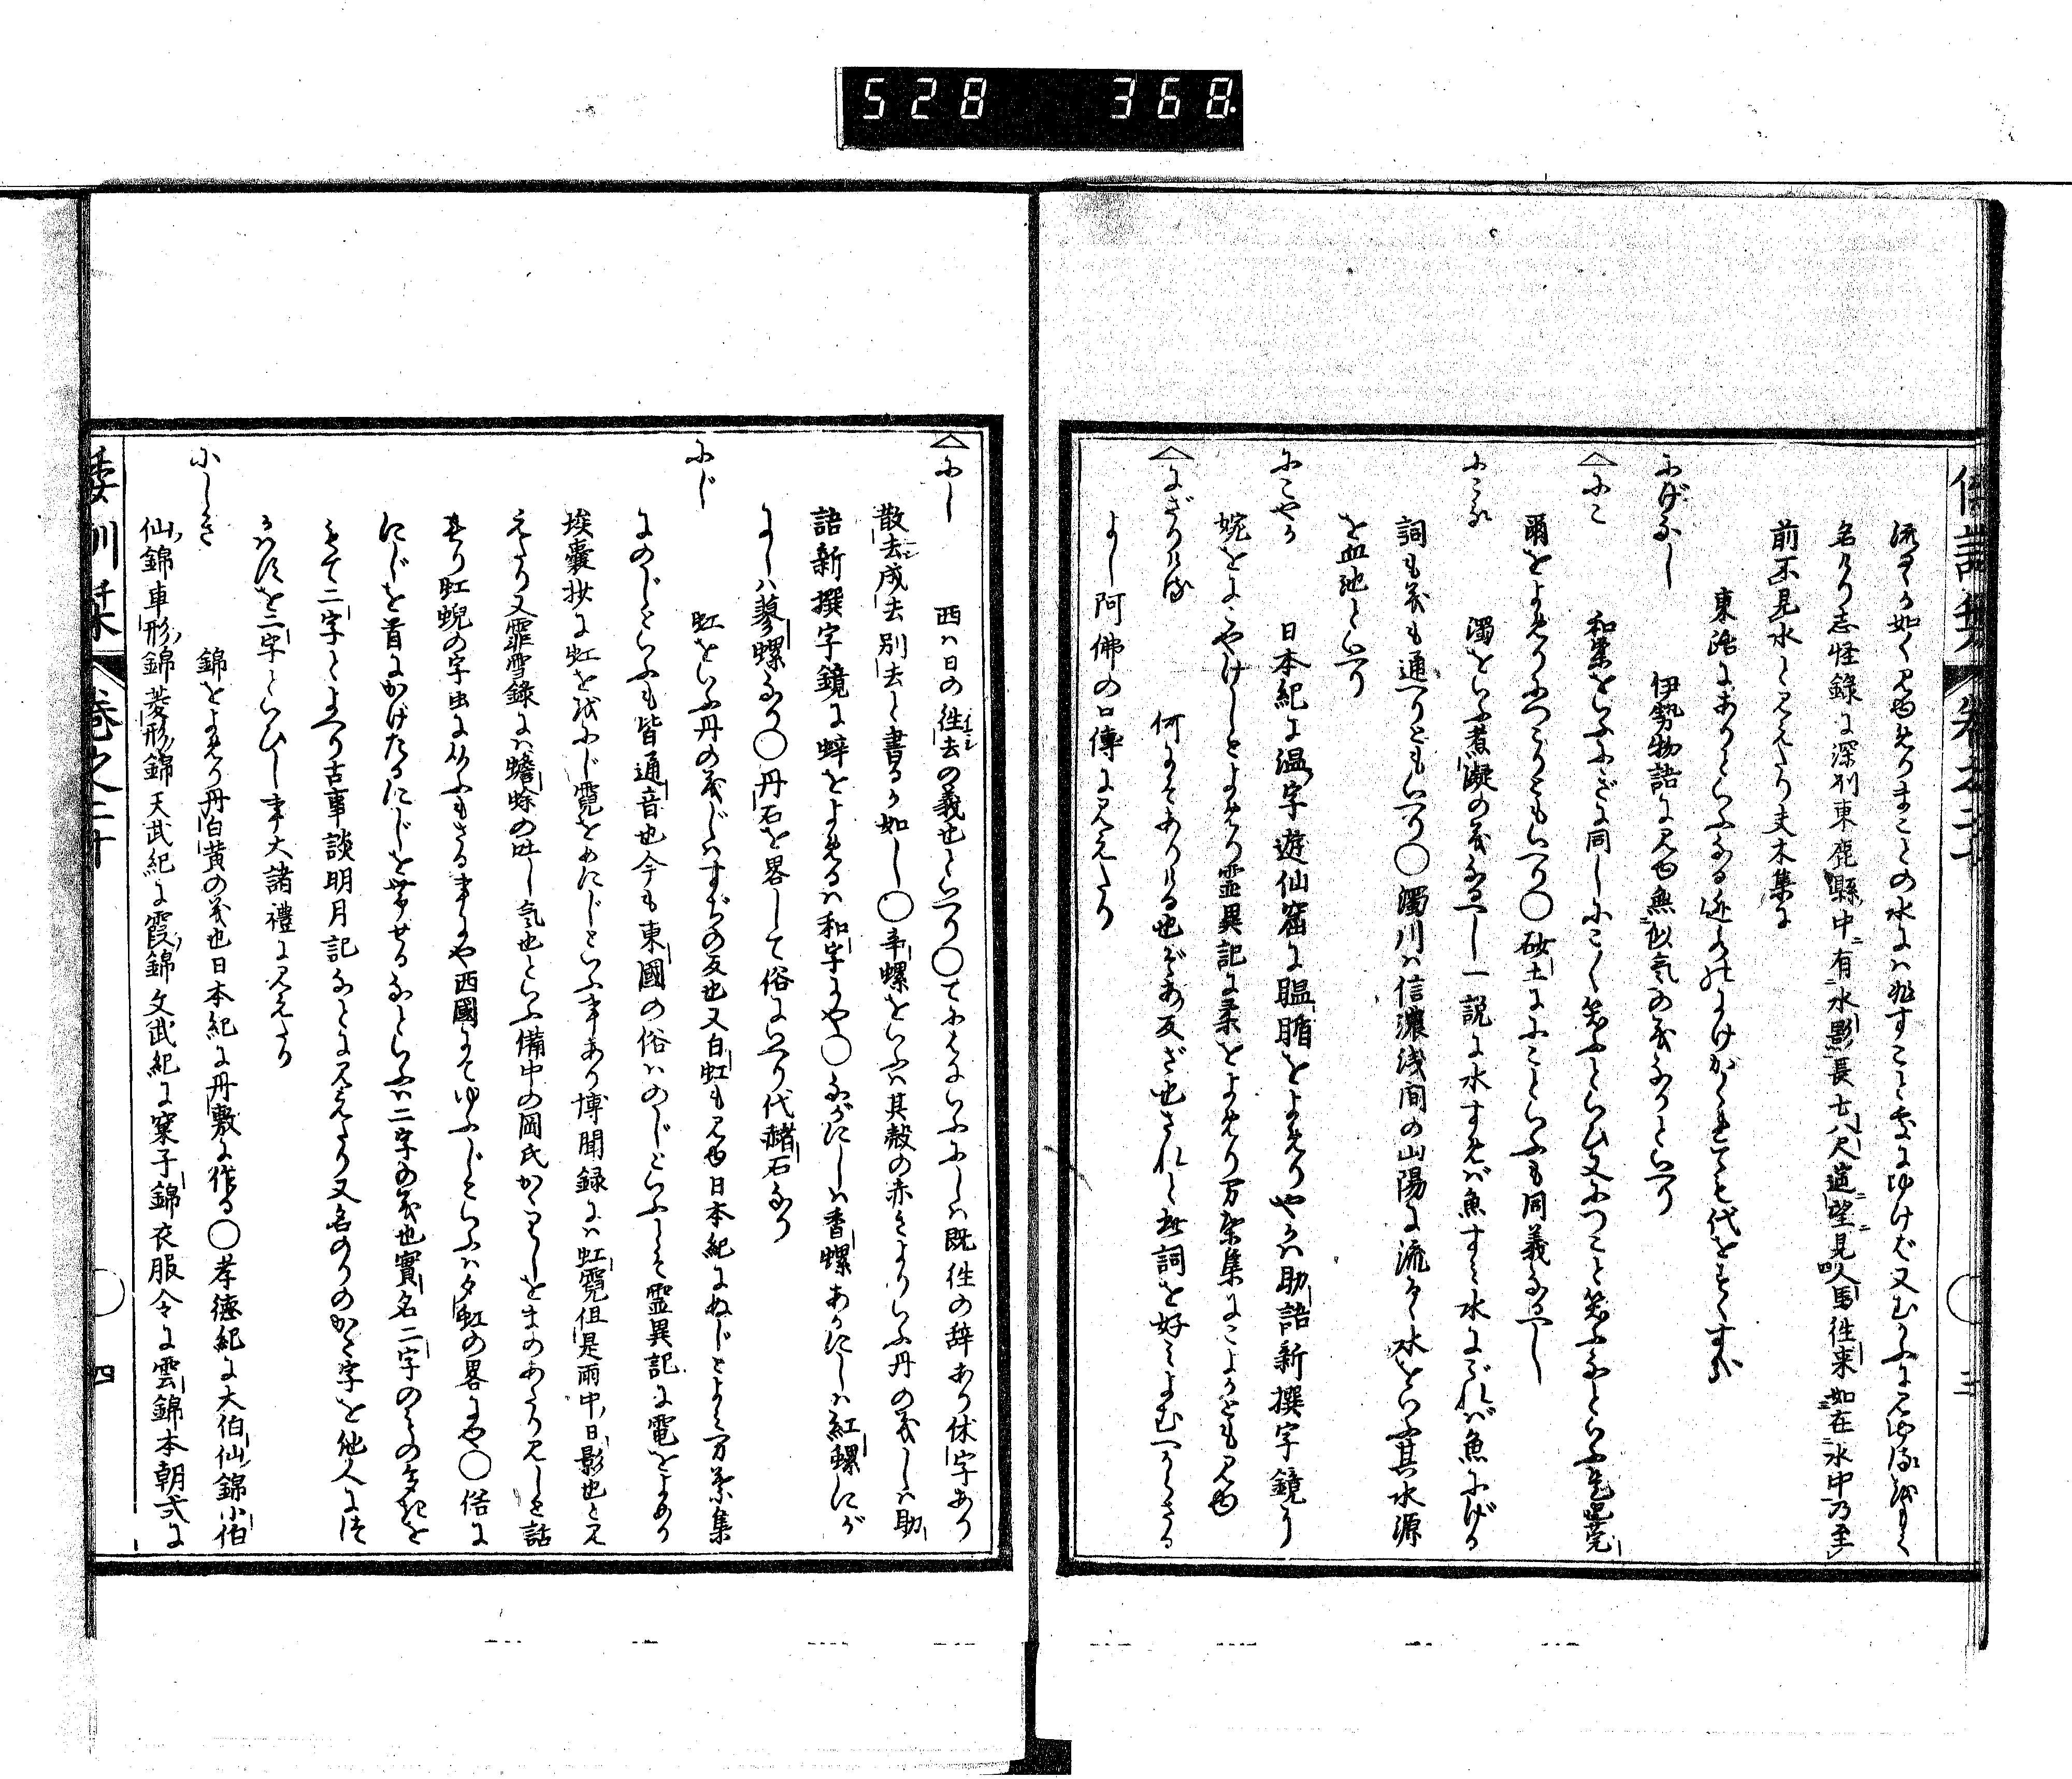 528 368
流るゝ如く見ゆめりまことの水にハ非すこと處にゆけば又むかふに見ゆ
名けり志怪錄に深州東鹿縣中有水影長七八尺遥望見人馬徃来如在水中乃至
前不見水と見えたり夫木集に
東路にありといふなる逃水のにけかくれても代をすくすかな
にげなし 伊勢物語に見ゆ無似氣の義なりといへり
にこ 和柔をいふにぎに同しにこ〱笑ふといひ又につこと笑ふなといふ是也莞
爾をよめりにつこりともいへり〇砂土ににことといふも同義なるへし
にこる 濁をいふ煮凝の義なるへし一説に水すめば魚すミ水にごれば魚にげる
詞も義も通へりともいへり〇濁川ハ信濃浅間の山陽に流るゝ水をいふ其水源
を血池といへり
にこやか 日本紀に温字遊仙窟に腽腯をよめりやかハ助語新撰字鏡に
婉をにこやけしとよめり霊異記に柔をよめり万葉集ににこよかとも見ゆ
にざりける 何にそありける也ぞあ反ざ也されと此詞を好ミよむへからさる
よし阿佛の口傳に見えたり
倭訓栞 巻之二十 三
にし 西ハ日の徃去の義也といへり〇てにをはにいふにしハ既徃の辞あり休字あり
散去成去別去と書るか如し〇辛螺をいふハ其殻の赤きよりいふ丹の義しハ助
語新撰字鏡に蜶をよめるハ和字にや〇ながにしハ香螺あかにしハ紅螺にが
にしハ蓼螺なり〇丹石を畧して俗にいへり代赭石なり
にじ 虹をいふ丹の義じハすぢの反也又白虹も見ゆ日本紀にぬじとよミ万葉集
にのじといふも皆通音也今も東國の俗ハのじといふとそ霊異記に電をよめり
埃嚢抄に虹を雄にじ霓をめにじといふ事あり博聞録にハ虹霓但是雨中日影也と見
えたり又霏雪錄にハ蟾蜍の吐し氣也といふ備中の岡氏かくれしをまのあたり見しと話
せり虹蜺の字虫に从ふもさる事にや西國にてゆふじといふハ夕虹の畧にや〇俗に
にじを首にかけたるにじを带せるなといふハ二字の義也實名二字のミの名を
もて二字とよへり古事談明月記なとに見えたり又名のりのかた字を他人に
かハすを二字といひし事大諸禮に見えたり
にしき 錦をよめり丹白黄の義也日本紀に丹敷に作る〇孝徳紀に大伯仙錦小伯
仙錦車形錦菱形錦天武紀に霞錦文武紀に窠子錦衣服令に雲錦本朝式に
倭訓栞 巻之二十 四